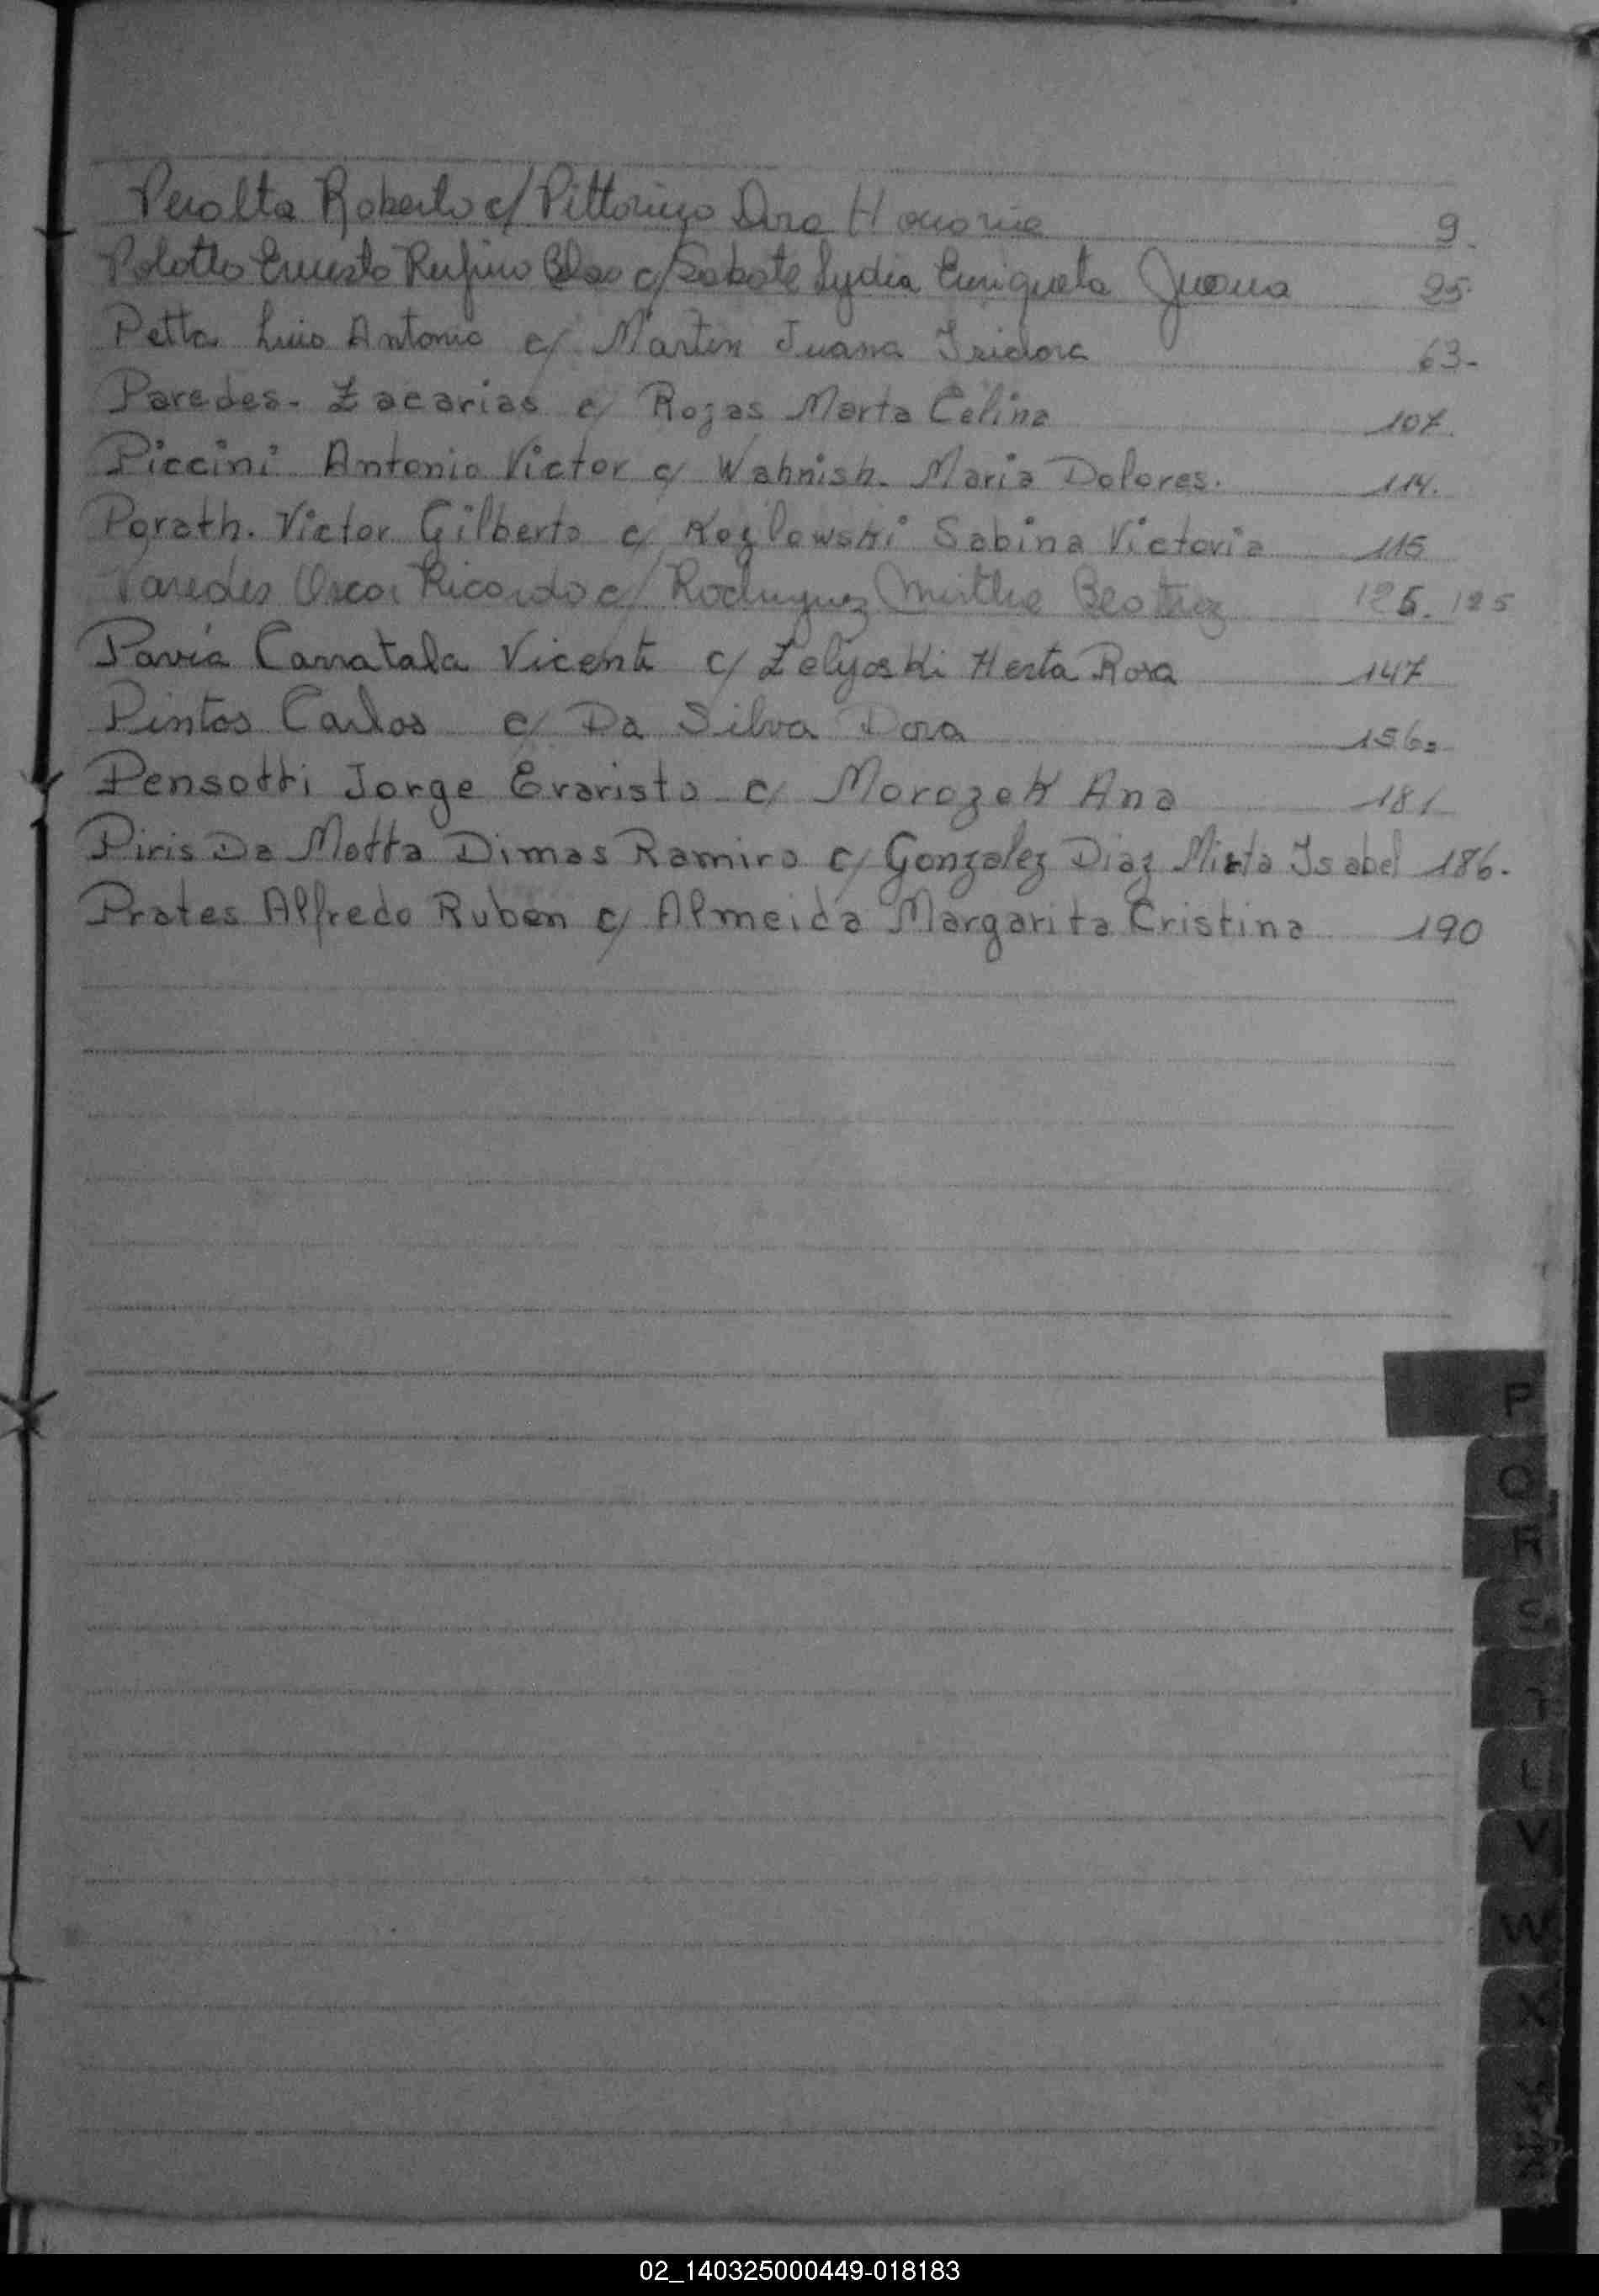 Peralta Roberto c/ Pittorino Dora Honoria 9.
Polotto Ernesto Rufino Blas c/ Sabate Lydia Enriqueta Juana 25.
Petta Luis Antonio c/ Martin Juana Isidora 63-
Paredes- Zacarias c/ Rojas Marta Celina 107.
Piccini Antonio Victor c/ Wahnish. Maria Dolores. 114.
Porath. Victor Gilberto c/ Kozlowski Sabina Victoria 115
Paredes Oscar Ricardo c/ Rodriguez Mirthe Beatriz 125. 125
Pavía Carratala Vicente c/ Zelyoski Herta Rosa 147
Pintos Carlos c/ Da Silva Dora 156=
Pensotti Jorge Evaristo c/ Morozek Ana 181
Piris Da Motta Dimas Ramiro c/ Gonzalez Diaz Mirta Isabel 186.
Prates Alfredo Ruben c/ Almeida Margarita Cristina 190
P
Q
R
S
T
V
W
X
02_140325000449-018183